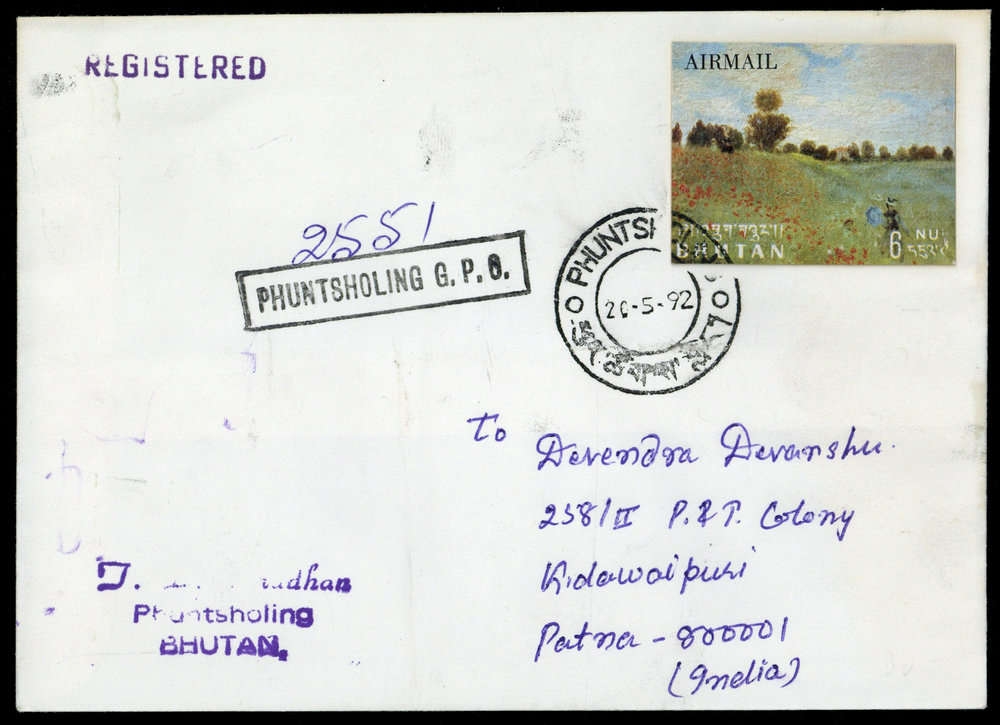 REGISTERED
AIRMAIL
BHUTAN
6 NU
2551
PHUNTSHOLING G. P. O.
PHUNTSH
-5-92
To
Devendra Devanshu.
258/II P. & T. Colony
Kidawaipuri
Patna - 800001
(India)
Phuntsholing
BHUTAN.